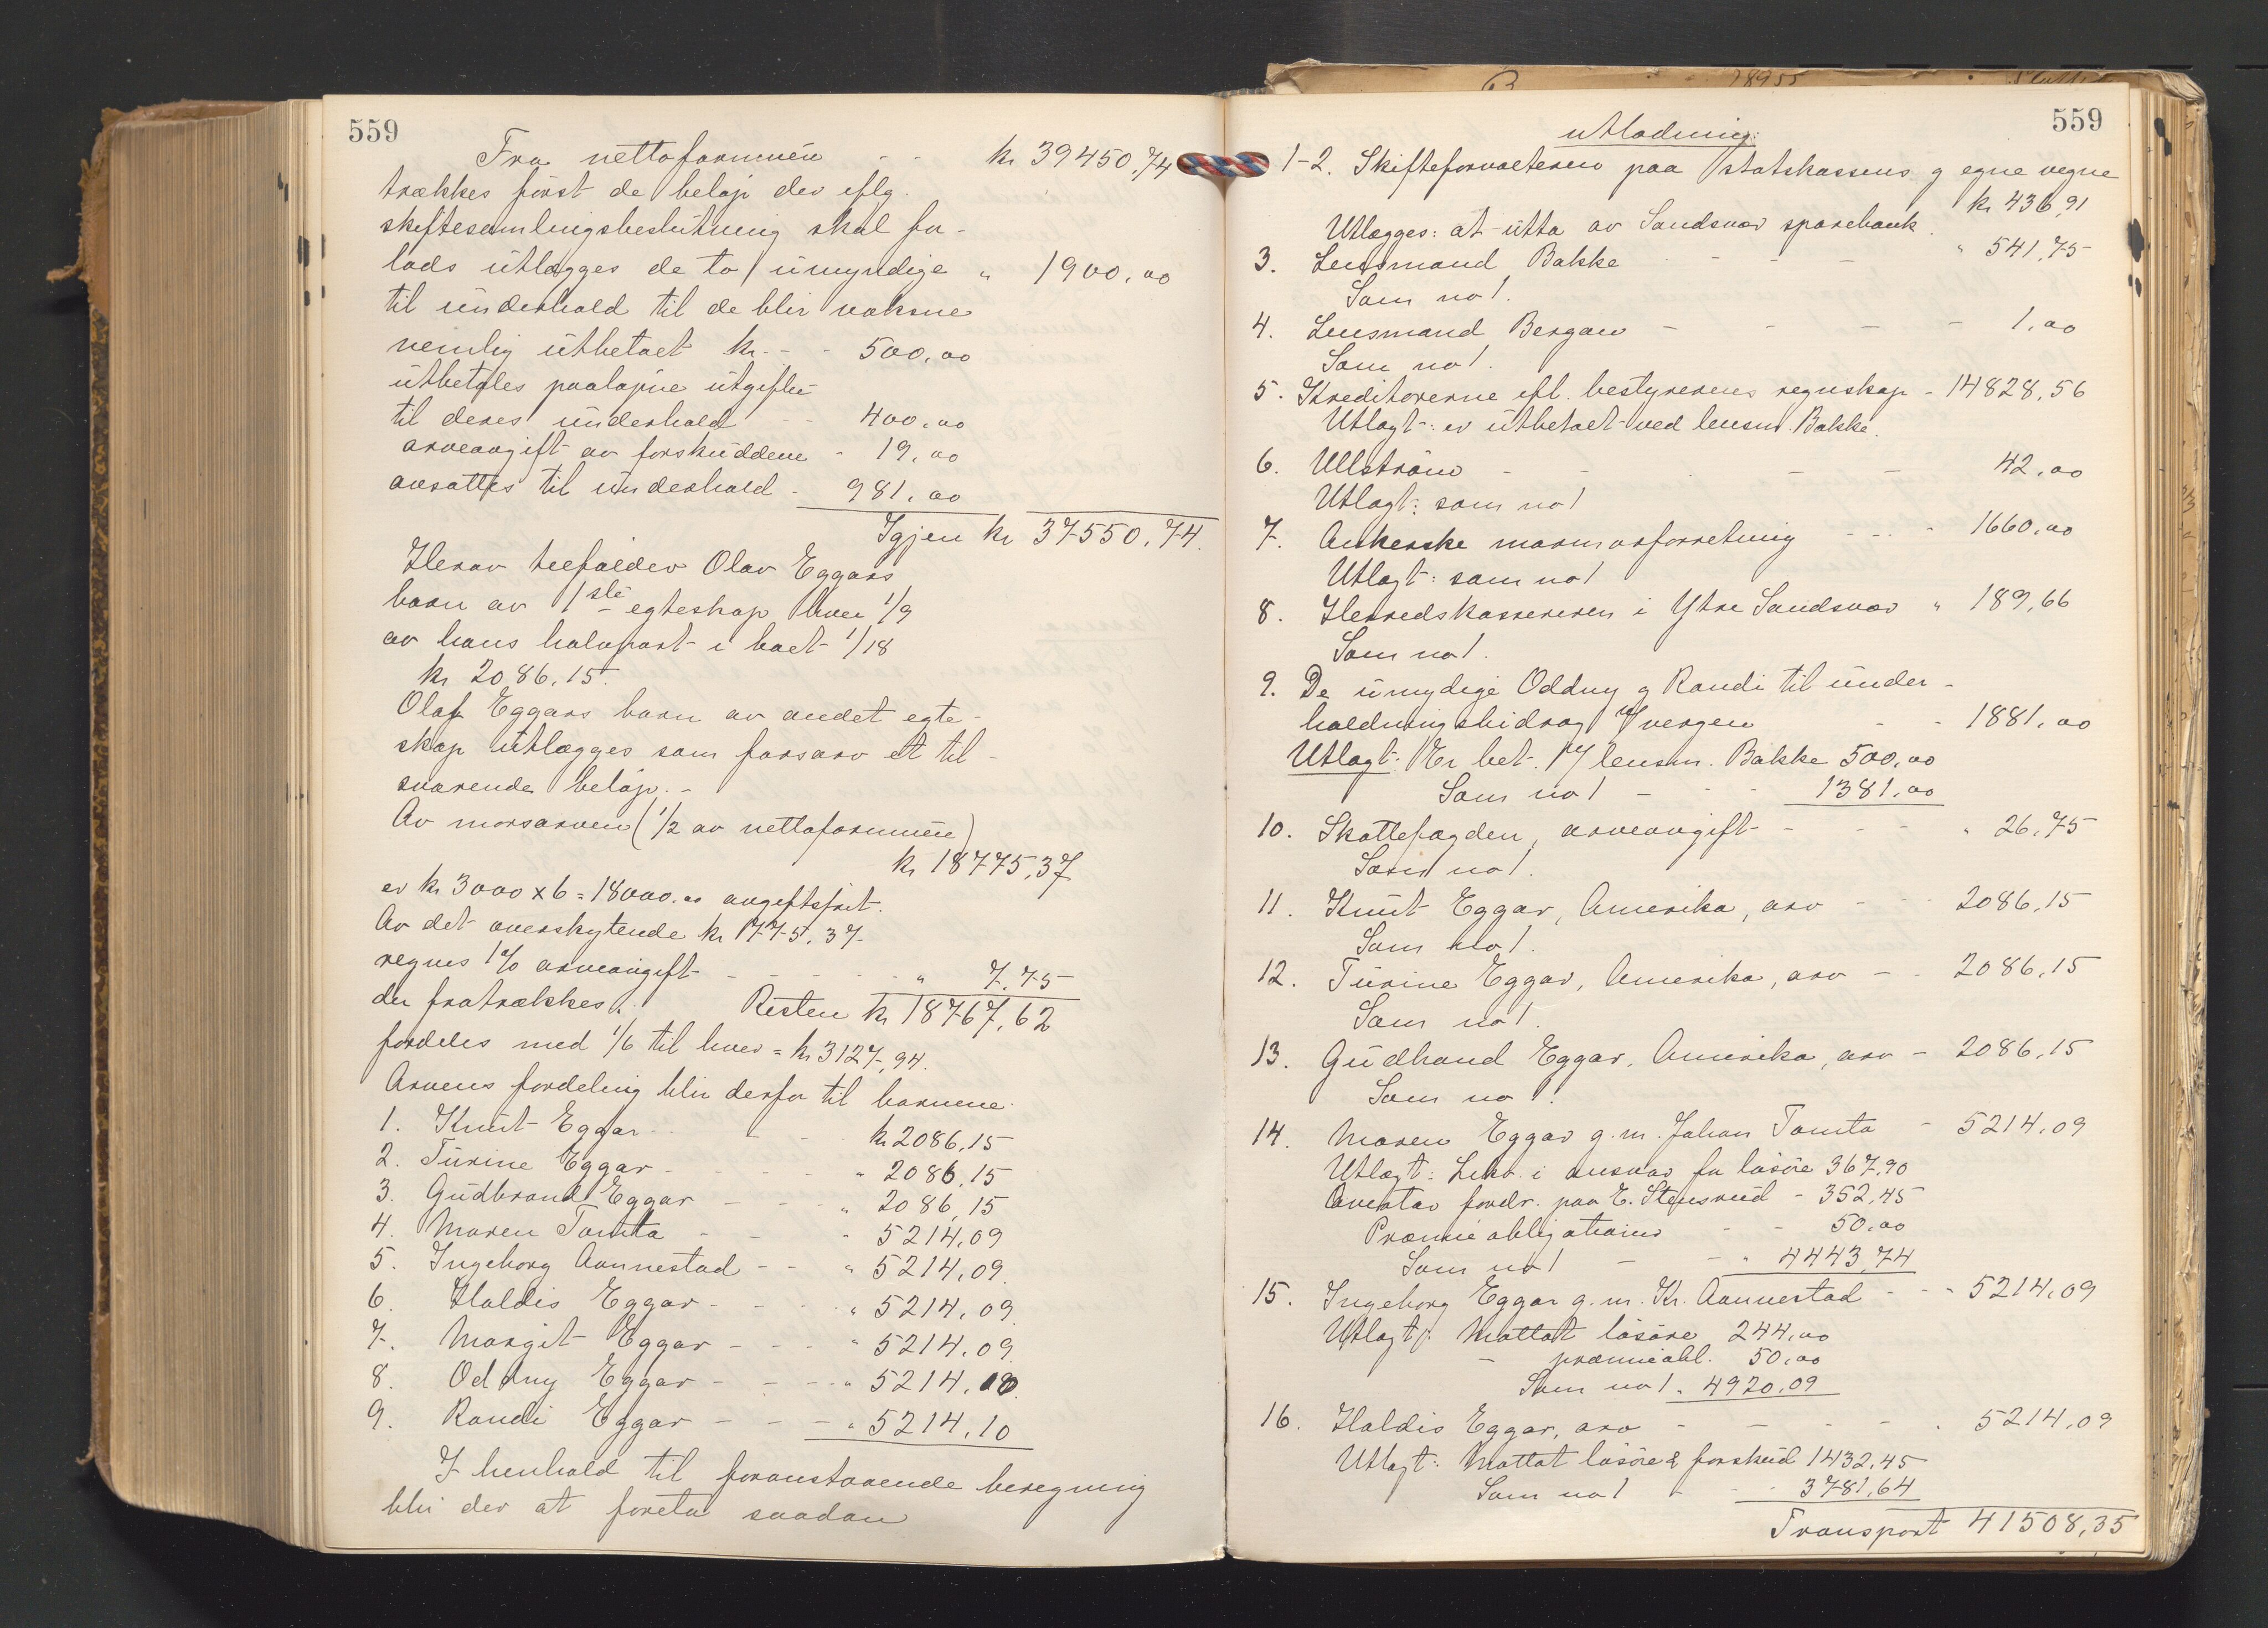 559
Fra nettoformuen - - kr 39450,74
trækkes först de belöp der iflg.
skiftesamlingsbeslutning skal for-
lods utlægges de to umyndige " 1900,00
til underhold til de blir voksne
nemlig utbetalt kr. - - 500,00
utbetales paaløpne utgifter
til deres underhold - - 400,00
arveavgift av forskuddene - 19,00
avsættes til underhold - 981,00
Igjen kr 37550,74.
Herav tilfalder Olav Eggars
barn av 1ste egteskap hver 1/9
av hans halvpart i boet 1/18
kr 2086,15.
Olaf Eggars barn av andet egte-
skap utlægges som farsarv et til-
svarende belöp. -
Av morsarven (1/2 av nettoformuen)
kr 18775,37
er kr 3000 x 6 = 18000.00 avgiftsfrit.
Av det overskytende kr 775,37
regnes 1% arveavgift - - - - - " 7,75
der fratrækkes. Resten kr 18767,62
fordeles med 1/6 til hver = kr 3127,94.
Arvens fordeling blir derfor til barnene:
1. Knut Eggar - - - kr 2086,15
2. Turine Eggar - - - - " 2086,15
3. Gudbrand Eggar - - - " 2086,15
4. Maren Tomta - - - " 5214,09
5. Ingeborg Aannestad - - " 5214,09.
6. Haldis Eggar - - - " 5214,09.
7. Margit Eggar - - - " 5214,09.
8. Oddny Eggar - - - " 5214,10.
9. Randi Eggar - - - " 5214,10
I henhold til foranstaaende beregning
blir der at foreta saadan
559
utlodning:
1-2. Skifteforvalteren paa statskassens og egne vegne
kr 436,91
Utlægges: at utta av Sandsvær sparebank.
3. Lensmand Bakke - - - " 541,75
Som no 1.
4. Lensmand Bergan - - - - 1,00
Som no 1.
5. Kreditorerne ifl. bestyrerens regnskap - 14828,56
Utlagt: er utbetalt ved lensm. Bakke.
6. Ullström - - - - 42,00
Utlagt: som no 1
7. Ankerske marmorforretning - - - 1660,00
Utlagt: som no 1
8. Herredskassereren i Ytre Sandsvær " 189,66
Som no 1.
9. De umydige Oddny og Randi til under-
holdningsbidrag v/ vergen - - 1881,00
Utlagt: Er bet. v/ lensm. Bakke 500,00
Som no 1 - - - 1381,00
10. Skattefogden, arveavgift - - - " 26,75
Som no 1.
11. Knut Eggar, Amerika, arv - - 2086,15
Som no 1.
12. Turine Eggar, Amerika, arv - - 2086,15
Som no 1.
13. Gudbrand Eggar, Amerika, arv - 2086,15
Som no 1.
14. Maren Eggar g.m. Johan Tomta - 5214,09
Utlagt: Likv. i ansvar for lösöre 367,90
Overtar fordr. paa E. Stensrud - 352,45
Præmieobligationer - - 50,00
Som no 1 - - " 4443,74
15. Ingeborg Eggar g.m. Kr. Aannestad - - - 5214,09
Utlagt: Mottat lösöre 244,00
- præmieobl. 50,00
Som no 1. 4920,09
16. Haldis Eggar, arv - - - - 5214,09
Utlagt: Mottat lösöre & forskud 1432,45
Som no 1 - - - 3781,64
Transport 41508,35